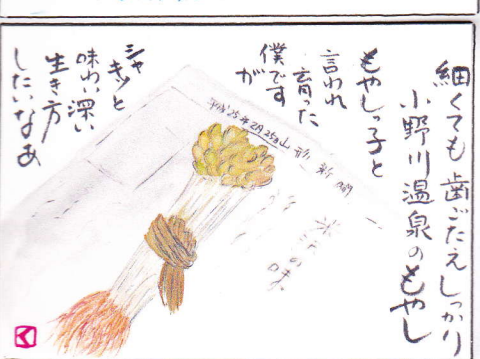 細くても歯ごたえしっかり
小野川温泉のもやし
もやしっ子と
言われ
育った
僕です
が
シャ
キッと
味わい深い
生き方
したいなあ
平成25年2月25日山形新聞
の味
く